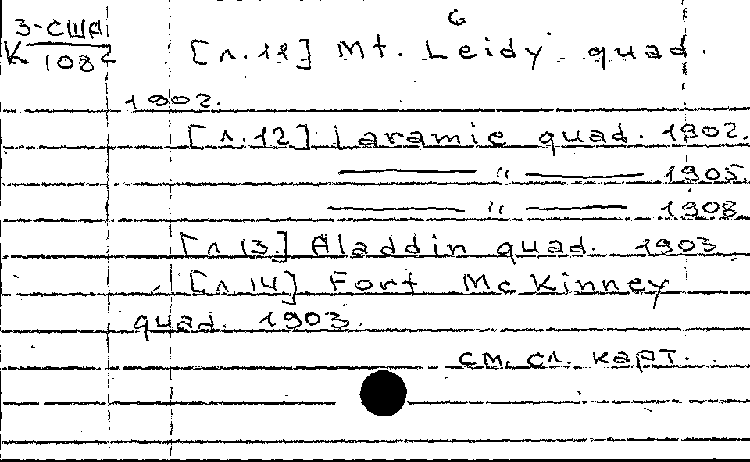 6
3-США
К 1082
[л.11] Mt. Leidy quad.
1902.
[л.12] Laramie quad. 1902.
—— " —— 1905.
—— " —— 1908.
[л.13] Aladdin quad. 1903
[л.14] Fort McKinney
quad. 1903.
см. сл. карт.